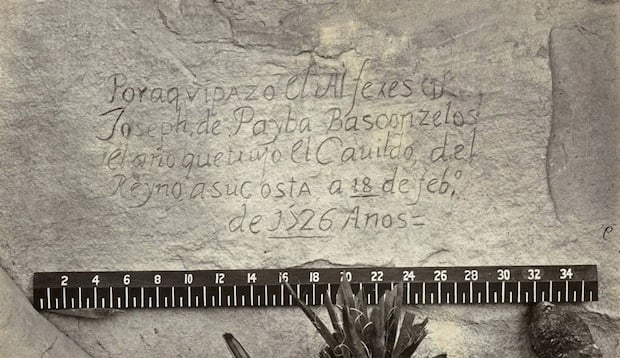 Por aqui pazo el Alferes Dn
Joseph de Payba Basconzelos
el año que trujo el Cauildo del
Reyno a su costa a 18 de feb.o
de 1526 Anos=
2 4 6 8 10 12 14 16 18 20 22 24 26 28 30 32 34